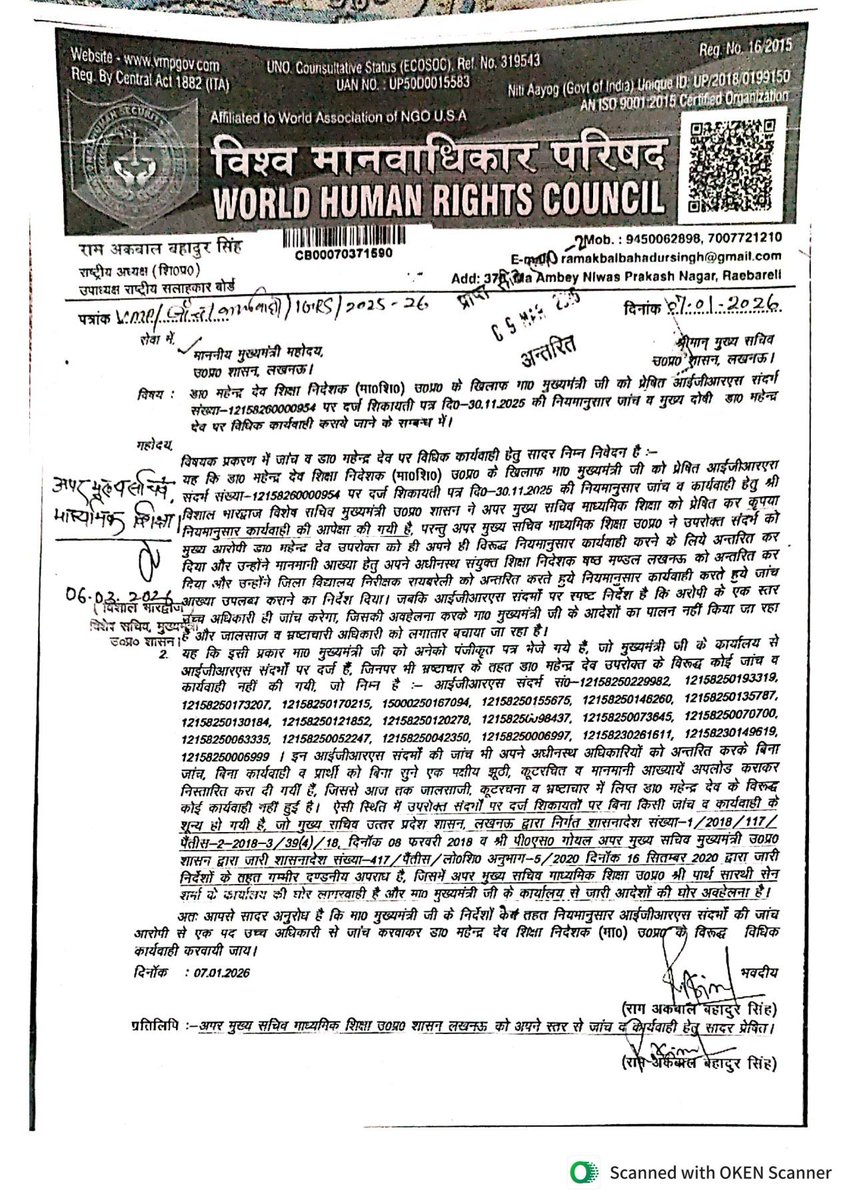 Website - www.vmpgov.com
Reg. By Central Act 1882 (ITA)
UNO. Counsultative Status (ECOSOC), Ref. No. 319543
UAN NO. : UP50D0015583
Reg. No. 16/2015
Niti Aayog (Govt of India) Unique ID: UP/2018/0199150
AN ISO 9001:2015 Certified Organization
Affiliated to World Association of NGO U.S.A
HUMAN SECURITY
विश्व मानवाधिकार परिषद
WORLD HUMAN RIGHTS COUNCIL
राम अकबाल बहादुर सिंह
राष्ट्रीय अध्यक्ष (शि०प्र०)
उपाध्यक्ष राष्ट्रीय सलाहकार बोर्ड
CB00070371590
Mob. : 9450062898, 7007721210
ramakbalbahadursingh@gmail.com
Add: Ma Ambey Niwas Prakash Nagar, Raebareli
पत्रांक /IGRS/2025-26
दिनांक 07-01-2026
अन्तरित
सेवा में,
माननीय मुख्यमंत्री महोदय,
उ०प्र० शासन, लखनऊ।
श्रीमान् मुख्य सचिव
उ०प्र० शासन, लखनऊ।
विषय : डा० महेन्द्र देव शिक्षा निदेशक (मा०शि०) उ०प्र० के खिलाफ मा० मुख्यमंत्री जी को प्रेषित आईजीआरएस संदर्भ
संख्या-12158260000954 पर दर्ज शिकायती पत्र दि०-30.11.2025 की नियमानुसार जांच व मुख्य दोषी डा० महेन्द्र
देव पर विधिक कार्यवाही कराये जाने के सम्बन्ध में।
महोदय,
विषयक प्रकरण में जांच व डा० महेन्द्र देव पर विधिक कार्यवाही हेतु सादर निम्न निवेदन है :-
यह कि डा० महेन्द्र देव शिक्षा निदेशक (मा०शि०) उ०प्र० के खिलाफ मा० मुख्यमंत्री जी को प्रेषित आईजीआरएस
संदर्भ संख्या-12158260000954 पर दर्ज शिकायती पत्र दि०-30.11.2025 की नियमानुसार जांच व कार्यवाही हेतु श्री
विशाल भारद्वाज विशेष सचिव मुख्यमंत्री उ०प्र० शासन ने अपर मुख्य सचिव माध्यमिक शिक्षा को प्रेषित कर कृपया
नियमानुसार कार्यवाही की आपेक्षा की गयी है, परन्तु अपर मुख्य सचिव माध्यमिक शिक्षा उ०प्र० ने उपरोक्त संदर्भ को
मुख्य आरोपी डा० महेन्द्र देव उपरोक्त को ही अपने ही विरुद्ध नियमानुसार कार्यवाही करने के लिये अन्तरित कर
दिया और उन्होंने मानमानी आख्या हेतु अपने अधीनस्थ संयुक्त शिक्षा निदेशक षष्ठ मण्डल लखनऊ को अन्तरित कर
दिया और उन्होंने जिला विद्यालय निरीक्षक रायबरेली को अन्तरित करते हुये नियमानुसार कार्यवाही करते हुये जांच
आख्या उपलब्ध कराने का निर्देश दिया। जबकि आईजीआरएस संदर्भों पर स्पष्ट निर्देश है कि अरोपी के एक स्तर
उच्च अधिकारी ही जांच करेगा, जिसकी अवहेलना करके मा० मुख्यमंत्री जी के आदेशों का पालन नहीं किया जा रहा
है और जालसाज व भ्रष्टाचारी अधिकारी को लगातार बचाया जा रहा है।
अपर मुख्य सचिव,
माध्यमिक शिक्षा।
(विशाल भारद्वाज)
विशेष सचिव, मुख्यमंत्री
उ०प्र० शासन।
2. यह कि इसी प्रकार मा० मुख्यमंत्री जी को अनेको पंजीकृत पत्र भेजे गये हैं, जो मुख्यमंत्री जी के कार्यालय से
आईजीआरएस संदर्भों पर दर्ज हैं, जिनपर भी भ्रष्टाचार के तहत डा० महेन्द्र देव उपरोक्त के विरूद्ध कोई जांच व
कार्यवाही नहीं की गयी, जो निम्न है :- आईजीआरएस संदर्भ सं०-12158250229982, 12158250193319,
12158250173207, 12158250170215, 15000250167094, 12158250155675, 12158250146260, 12158250135787,
12158250130184, 12158250121852, 12158250120278, 12158250098437, 12158250073645, 12158250070700,
12158250063335, 12158250052247, 12158250042350, 12158250006997, 12158230261611, 12158230149619,
12158250006999 । इन आईजीआरएस संदर्मों की जांच भी अपने अधीनस्थ अधिकारियों को अन्तरित करके बिना
जांच, बिना कार्यवाही व प्रार्थी को बिना सुने एक पक्षीय झूठी, कूटरचित व मानमानी आख्यायें अपलोड कराकर
निस्तारित करा दी गयी हैं, जिससे आज तक जालसाजी, कूटरचना व भ्रष्टाचार में लिप्त डा० महेन्द्र देव के विरूद्ध
कोई कार्यवाही नहीं हुई है। ऐसी स्थिति में उपरोक्त संदर्भों पर दर्ज शिकायतों पर बिना किसी जांच व कार्यवाही के
शून्य हो गयी है, जो मुख्य सचिव उत्तर प्रदेश शासन, लखनऊ द्वारा निर्गत शासनादेश संख्या-1/2018/117/
पैंतीस-2-2018-3/39(4)/18, दिनॉक 08 फरवरी 2018 व श्री पी०एस० गोयल अपर मुख्य सचिव मुख्यमंत्री उ०प्र०
शासन द्वारा जारी शासनादेश संख्या-417/पैंतीस/लो०शि० अनुभाग-5/2020 दिनॉक 16 सितम्बर 2020 द्वारा जारी
निर्देशों के तहत गम्भीर दण्डनीय अपराध है, जिसमें अपर मुख्य सचिव माध्यमिक शिक्षा उ०प्र० श्री पार्थ सारथी सेन
शर्मा के कार्यालय की घोर लापरवाही है और मा० मुख्यमंत्री जी के कार्यालय से जारी आदेशों की घोर अवहेलना है।
अतः आपसे सादर अनुरोध है कि मा० मुख्यमंत्री जी के निर्देशों के तहत नियमानुसार आईजीआरएस संदर्भों की जांच
आरोपी से एक पद उच्च अधिकारी से जांच करवाकर डा० महेन्द्र देव शिक्षा निदेशक (मा०) उ०प्र० के विरूद्ध विधिक
कार्यवाही करवायी जाय।
दिनॉक : 07.01.2026
भवदीय
(राम अकबाल बहादुर सिंह)
प्रतिलिपि :-अपर मुख्य सचिव माध्यमिक शिक्षा उ०प्र० शासन लखनऊ को अपने स्तर से जांच व कार्यवाही हेतु सादर प्रेषित।
(राम अकबाल बहादुर सिंह)
Scanned with OKEN Scanner